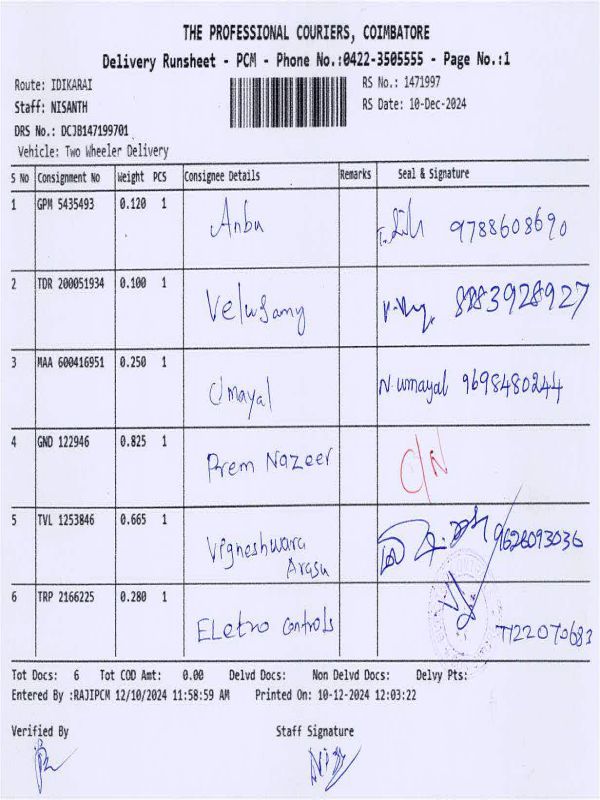 THE PROFESSIONAL COURIERS, COIMBATORE
Delivery Runsheet - PCM - Phone No.:0422-3505555 - Page No.:1
Route: IDIKARAI
RS No.: 1471997
Staff: NISANTH
RS Date: 10-Dec-2024
DRS No.: DCJB147199701
Vehicle: Two Wheeler Delivery
S No Consignment No Weight PCS Consignee Details Remarks Seal & Signature
1 GPM 5435493 0.120 1 Anbu 9788608690
2 TDR 200051934 0.100 1 Velusamy 8283928927
3 MAA 600416951 0.250 1 Umayal N umayal 9698480244
4 GND 122946 0.825 1 Prem Nazeer C/N
5 TVL 1253846 0.665 1 Vigneshwara Arasu 9626093036
6 TRP 2166225 0.280 1 ELetro controls 7122070683
Tot Docs: 6 Tot COD Amt: 0.00 Delvd Docs: Non Delvd Docs: Delvy Pts:
Entered By :RAJIPCM 12/10/2024 11:58:59 AM Printed On: 10-12-2024 12:03:22
Verified By Staff Signature